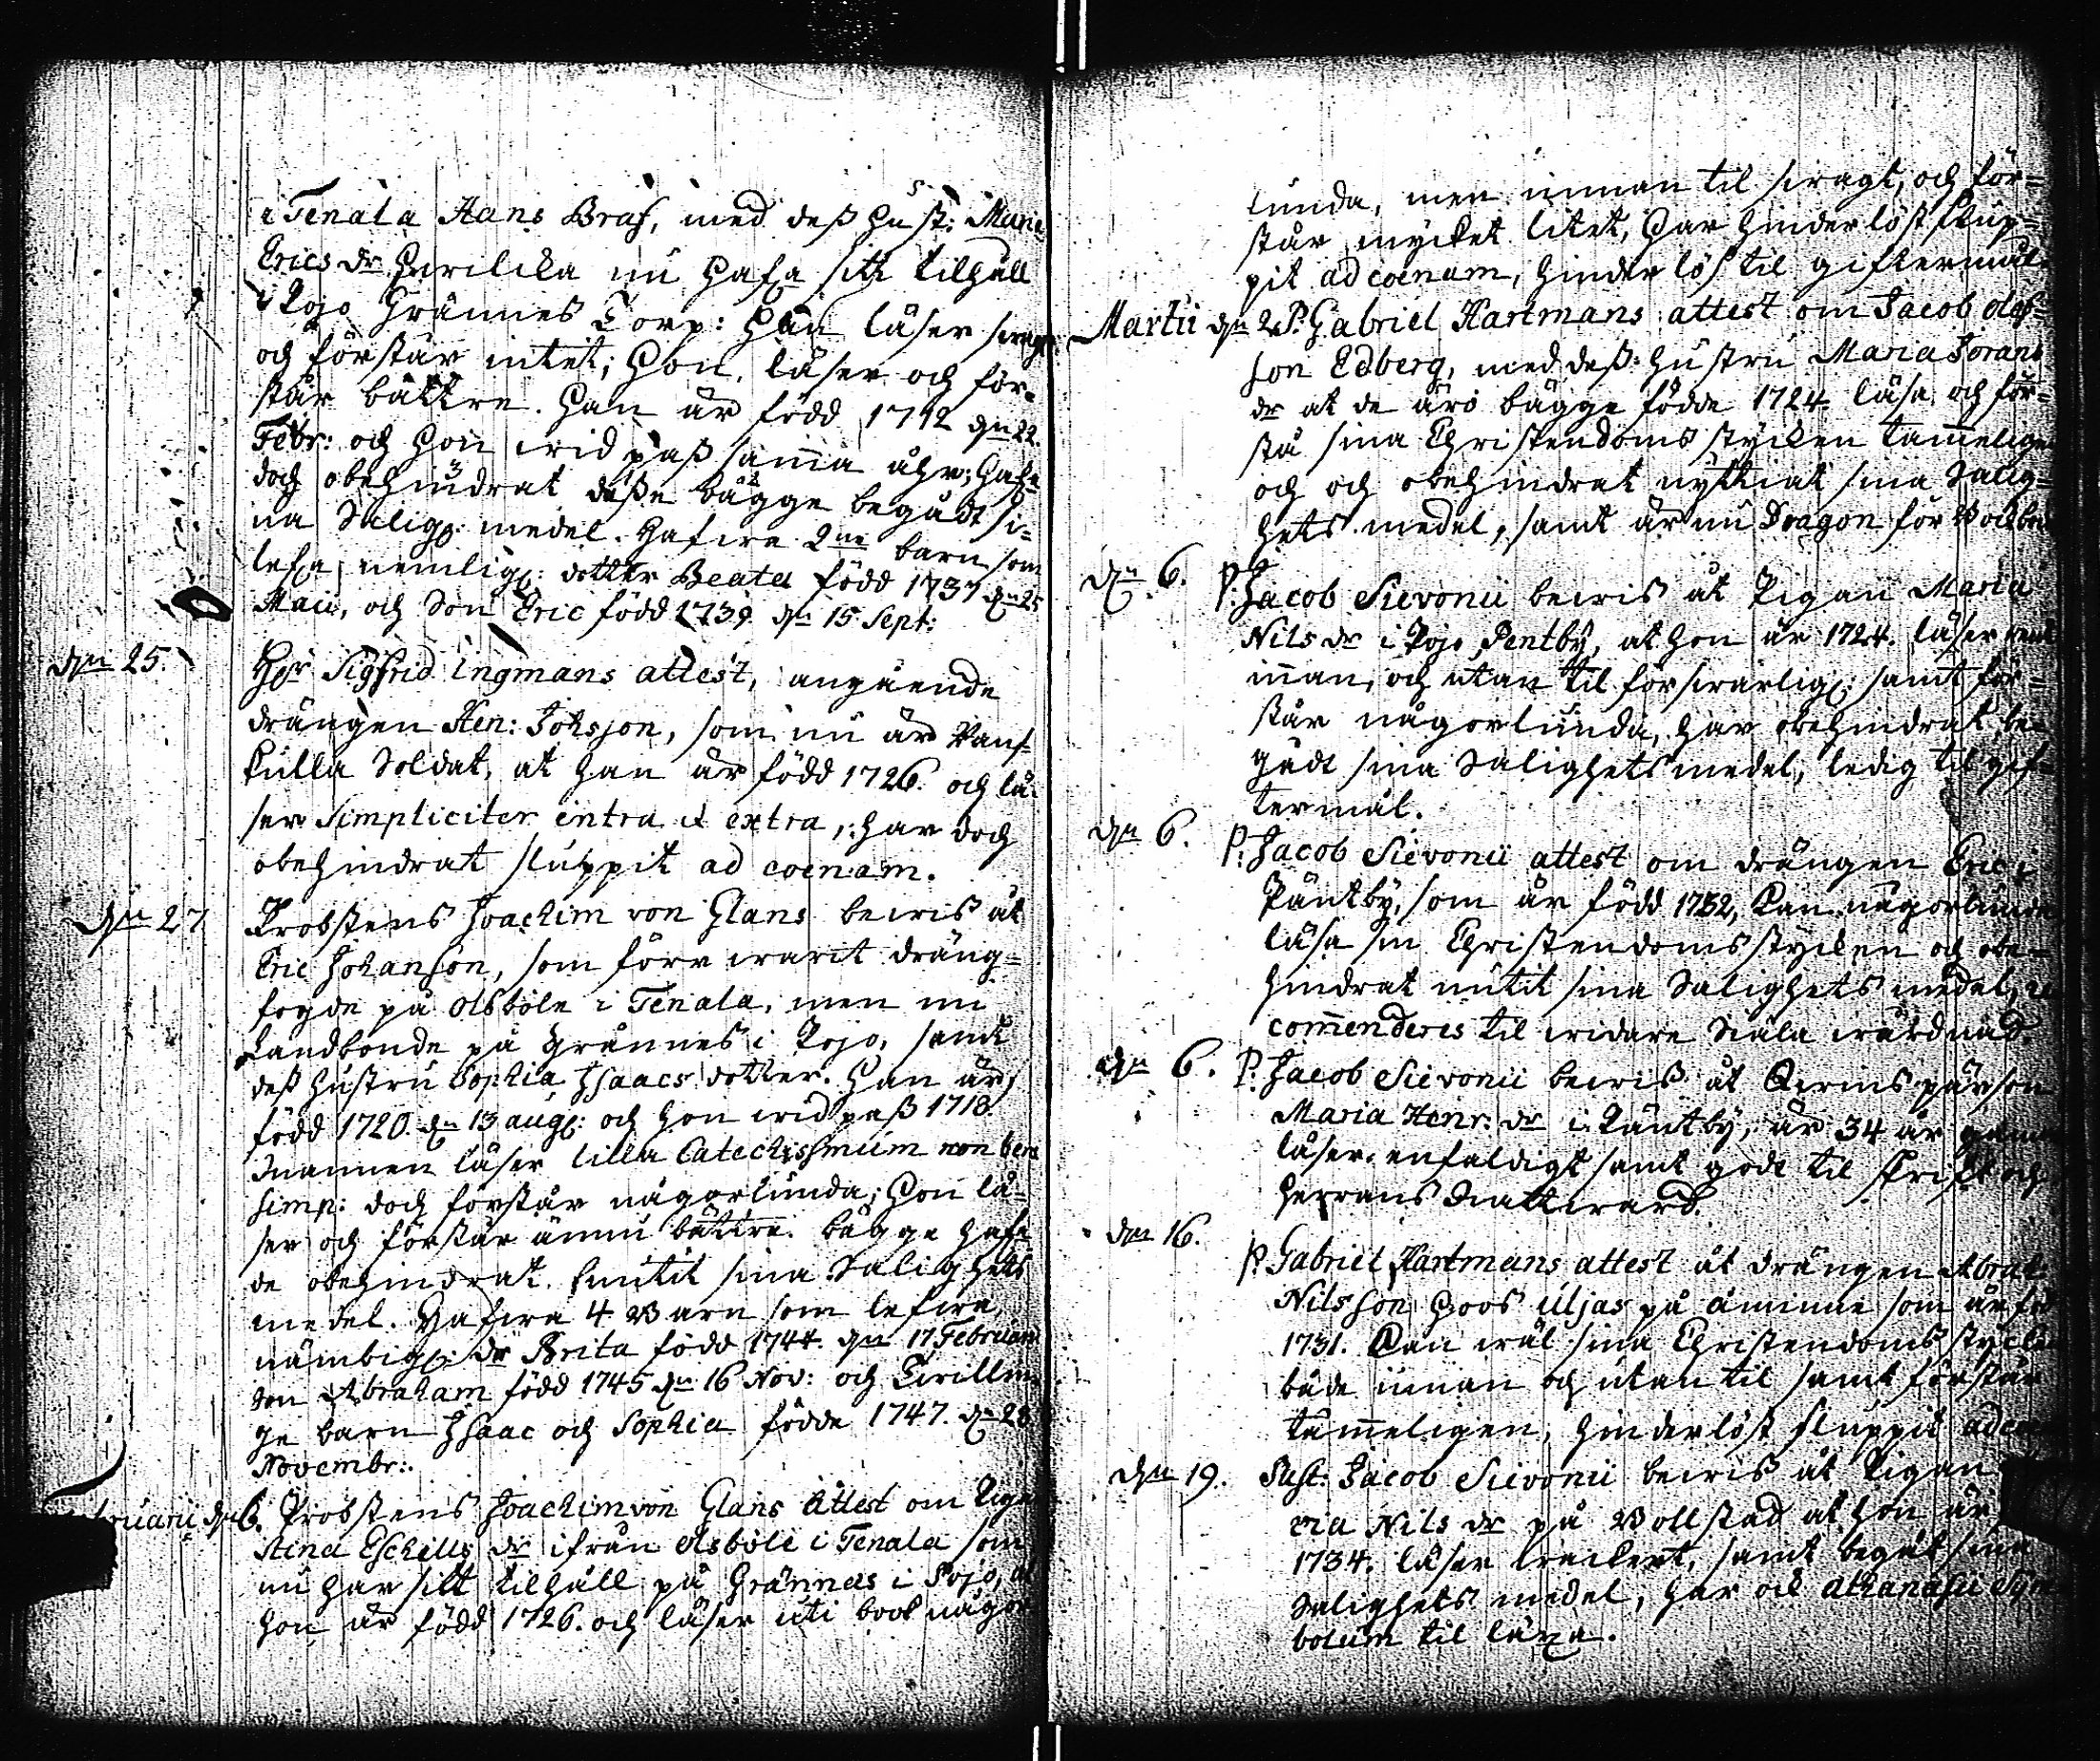 i Tenala Hans Braf, med deß hust: Maria
Erics dr hvilcka nu hafa sitt tilhåll
i Pojo Grännes Torp: Han läser svagt
och förstår intet; Hon läser och för-
står bättre. Han är född 1712 dn 22.
Febr: och hon vid paß samma åhr; Hafa
doch obehindrat deße bägge begådt si-
na Saligh: medel. Hafva 2ne barn som
lefva, nemligh: dotter Beata född 1737 dn 25
Maii, och Son Eric född 1739 dn 15 Sept:
dn 25. Hr Sigfrid Ingmans attest, angående
drängen Hen: Johsson, som nu är
kulla Soldat, at han är född 1726. och lä-
ser Simpliciter intra et extra, har doch
obehindrat sluppit ad coenam.
dn 27 Probstens Joachim von Glans bevis åt
Eric Johansson, som förr varit dräng-
fogde på Olsböle i Tenala, men nu
Landbonde på Grännes i Pojo, samt
deß hustru Sophia Isaacs dotter. Han är
född 1720. dn 13 aug: och hon vid paß 1718.
Mannen läser lilla Catechismum non bene
simp: doch förstår någorlunda; Hon lä-
ser och förstår ännu bättre. bägge haf-
de obehindrat sina Salighets
medel. Hafva 4 Barn som lefva,
nämligh: dr Brita född 1744. dn 17 Februarii
Son Abraham född 1745 dn 16 Nov: och Tvillin-
ge barn Isaac och Sophia födde 1747. dn 28
Novembr:.
Februarii dn 6. Probstens Joachim von Glans Attest om Piga
Stina Eschells dr ifrån Olsböle i Tenala som
nu har sitt tilhåll på Grännäs i Pojo, at
hon är född 1726. och läser uti book någor
lunda, men innan til svagt, och för-
står mycket litet, har hinderlöst slup-
pit ad coenam, hinderlös til giftermål.
Martii dn 2 P. Gabriel Hartmans attest om Jacob Olofs-
son Edberg, med deß hustru Maria Jorans
dr at de äro bägge födde 1724. läsa och för-
stå sina Christendoms stycken tammeligen
och och obehindrat nyttiat sina Salig-
hets medel, samt är nu Dragon för
dn 6. P. Jacob Sievonii bevis åt Pigan Maria
Nils dr i Pojo Pentby, at hon är 1724. läser
innan, och utan til försvarligh: samt för-
står någorlunda, har obehindrat be-
gådt sina Salighetsmedel, ledig til gif-
termål.
dn 6. P: Jacob Sievonii attest om drängen Eric i
Päntby, som är född 1732, kan någorlunda
läsa sin Christendomsstycken och obe-
hindrat nutit sina Salighets medel, re
commenderes til vidare Siäla vårdnad.
dn 6. P. Jacob Sievonii bevis åt Qvins pärson
Maria Henr: dr i Päntby, är 34 år gammal
läser enfaldigt samt gådt til skrift och
Herrans Nattvard.
dn 16. P. Gabriel Hartmans attest åt drängen Abrah:
Nilsson hoos Uljas på Åminne som är fö
1731. Kan väl sina Christendoms stycken
både innan och utan til samt förstår
tämmeligen, hinderlöst sluppit ad coe
dn 19. Past: Jacob Sievonii bevis åt Pigan
ria Nils dr på Bollstad at hon är
1734. läser vackert, samt begåt sina
Salighets medel, har ock Athanasii Sym-
bolum til läxa.